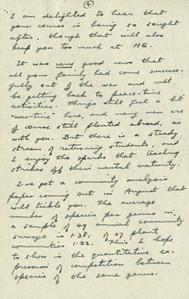 4
I am delighted to hear that
your course is being so sought
after, though that will also
keep you too much at HQ.
It was very good news that
all your family had come success-
fully out of the war and
be getting back to peace-time
activities. Things still feel a bit
'wartime' here, and many men are
of course still planted abroad, as
with you. But there is a steady
stream of returning students, and
I enjoy the sparks that
strikes off their mental maturity.
I've got a community analysis
paper coming out in August that
will tickle you. The average
number of species per genus in
a sample of 49 animal community
surveys is 1.38, of 27 plant
communities 1.22. This I hope
to show is the quantitative ex-
pression of competition between
species of the same genus.